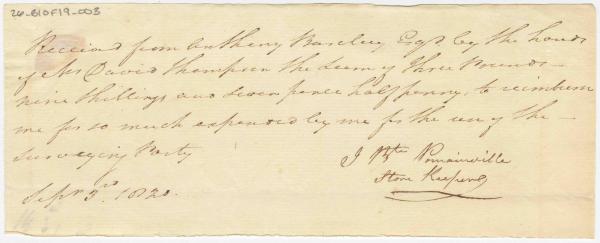 26-B10F19-003
Received from Anthony Barclay Esqr by the hands
of Mr David Thompson the sum of three Pounds
nine shillings and seven pence half penny, to reimburse
me for so much expended by me for the use of the
surveying Party
J Bte Romainville
Store Keeper
Sepr 3rd 1820.